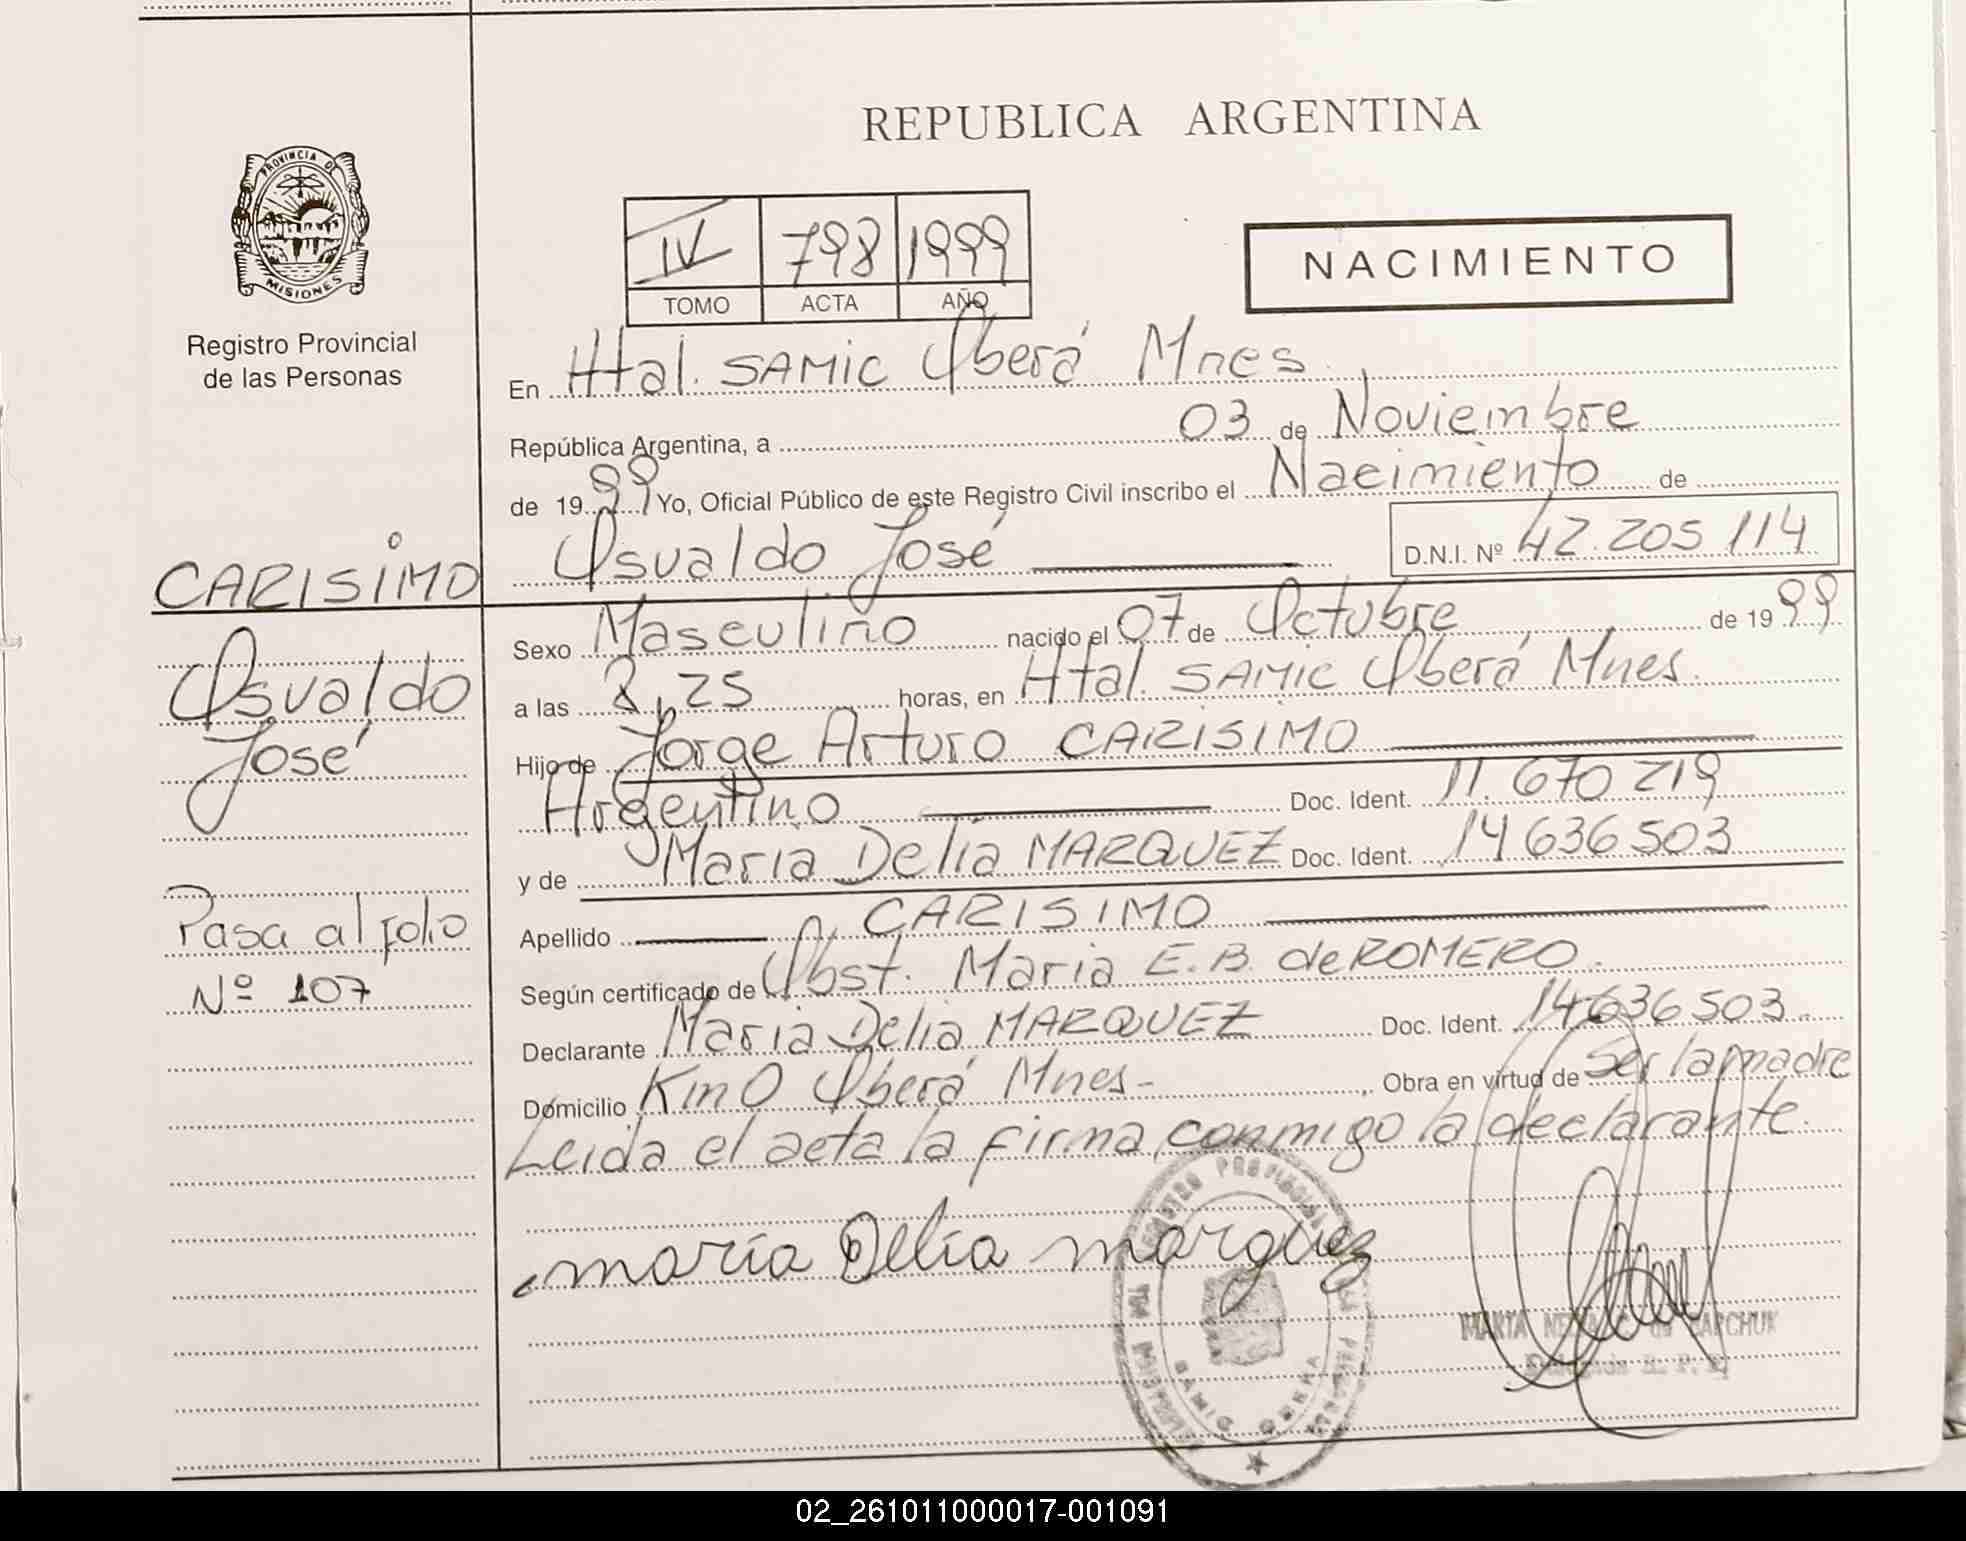 REPUBLICA ARGENTINA
PROVINCIA DE
MISIONES
Registro Provincial
de las Personas
IV 798 1999
TOMO ACTA AÑO
NACIMIENTO
En Htal. SAMIC Oberá Mnes.
República Argentina, a 03 de Noviembre
de 1999 Yo, Oficial Público de este Registro Civil inscribo el Nacimiento de
Osvaldo José D.N.I. Nº 42.205.114
Sexo Masculino nacido el 07 de Octubre de 1999
a las 8,25 horas, en Htal. SAMIC Oberá Mnes.
Hijo de Jorge Arturo CARISIMO
Argentino Doc. Ident. 11.670 219
y de Maria Delia MARQUEZ Doc. Ident. 14 636 503
Apellido CARISIMO
Según certificado de Obst. Maria E.B. de ROMERO.
Declarante Maria Delia MARQUEZ Doc. Ident. 14636503.
Domicilio Km 0 Oberá Mnes- , Obra en virtud de ser la madre
Leida el acta la firma conmigo la declarante.
maría Delia marquez
CARISIMO
Osvaldo
José
Pasa al folio
Nº 107
REGISTRO PROVINCIAL
SAMIC OBERA
MARTA
02_261011000017-001091